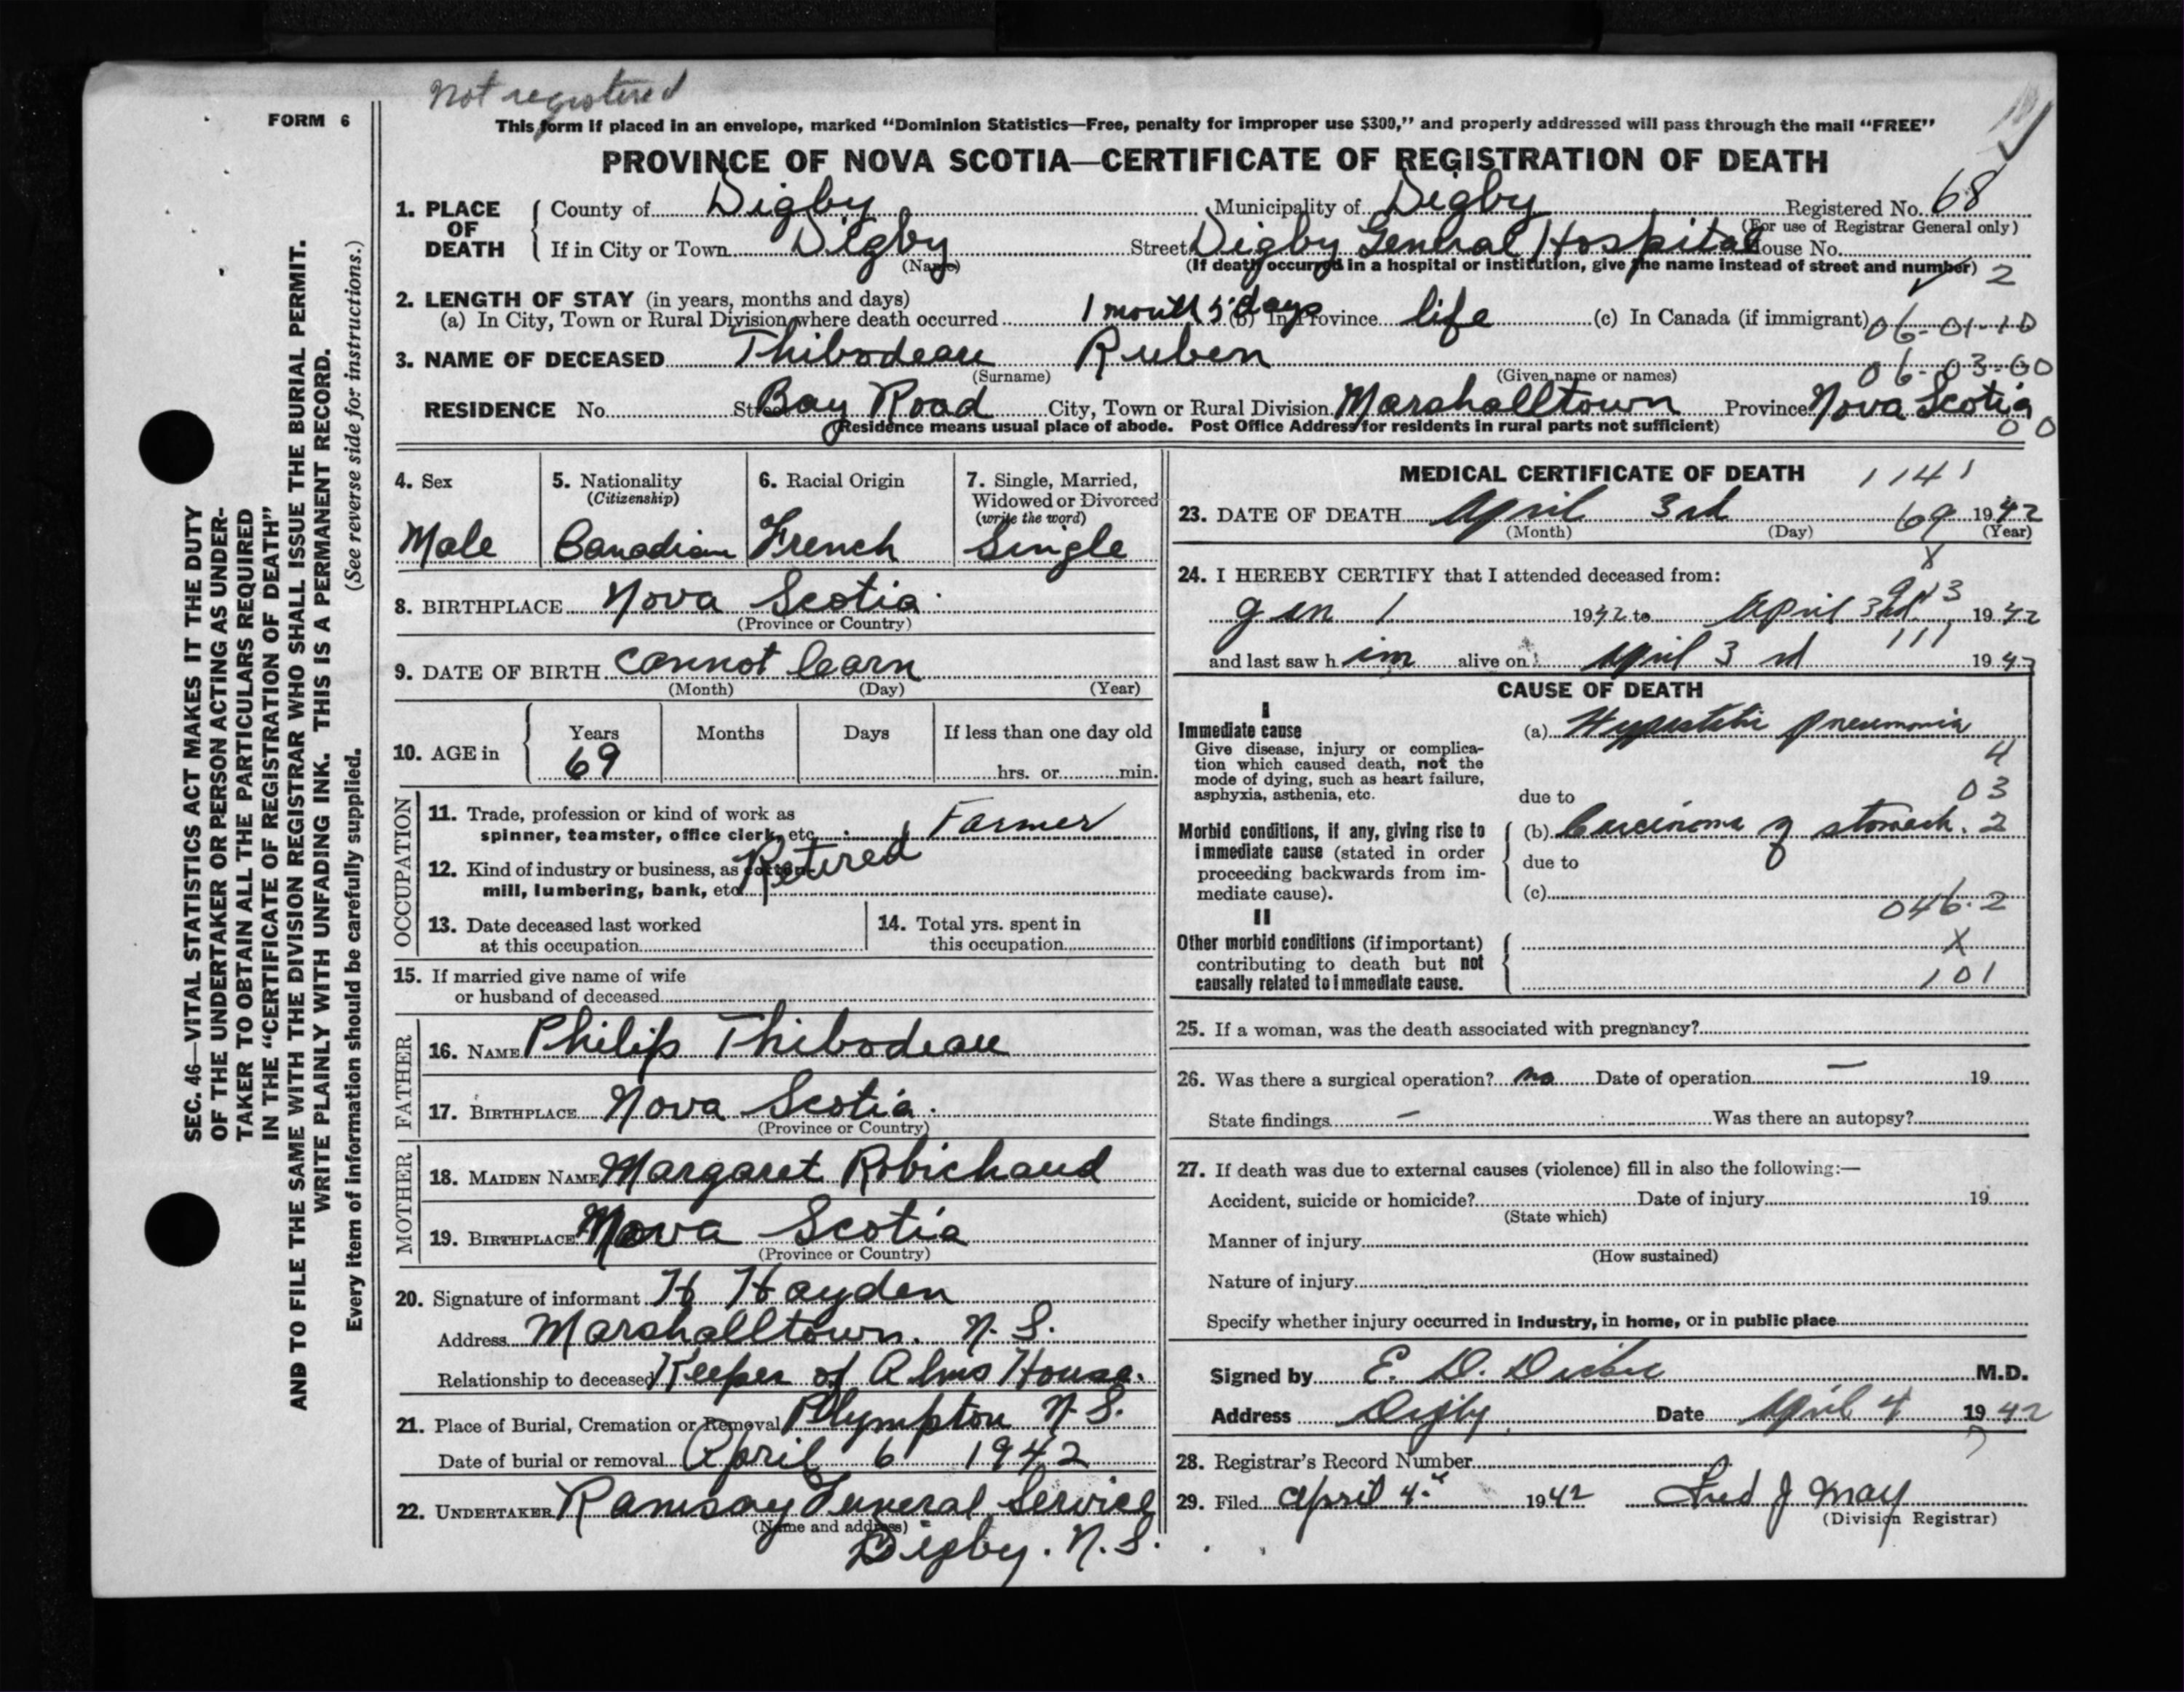 Not registered
FORM 6
This form if placed in an envelope, marked “Dominion Statistics—Free, penalty for improper use $300,” and properly addressed will pass through the mail “FREE”
PROVINCE OF NOVA SCOTIA—CERTIFICATE OF REGISTRATION OF DEATH
1. PLACE OF DEATH
County of Digby Municipality of Digby Registered No. 68
(For use of Registrar General only)
If in City or Town Digby Street Digby General Hospital House No.
(Name) (If death occurred in a hospital or institution, give the name instead of street and number) 2
2. LENGTH OF STAY (in years, months and days)
(a) In City, Town or Rural Division where death occurred 1 month 5 days (b) In Province life (c) In Canada (if immigrant) 06-01-10
3. NAME OF DECEASED Thibodeau Ruben 06-03-00
(Surname) (Given name or names)
RESIDENCE No. Street Bay Road City, Town or Rural Division Marshalltown Province Nova Scotia
(Residence means usual place of abode. Post Office Address for residents in rural parts not sufficient) 00
4. Sex
Male
5. Nationality
(Citizenship)
Canadian
6. Racial Origin
French
7. Single, Married,
Widowed or Divorced
(write the word)
Single
8. BIRTHPLACE Nova Scotia
(Province or Country)
9. DATE OF BIRTH cannot learn
(Month) (Day) (Year)
10. AGE in
Years Months Days If less than one day old
69 hrs. or min.
OCCUPATION
11. Trade, profession or kind of work as
spinner, teamster, office clerk, etc. Farmer
12. Kind of industry or business, as cotton-
mill, lumbering, bank, etc. Retired
13. Date deceased last worked
at this occupation
14. Total yrs. spent in
this occupation
15. If married give name of wife
or husband of deceased
FATHER
16. NAME Philip Thibodeau
17. BIRTHPLACE Nova Scotia.
(Province or Country)
MOTHER
18. MAIDEN NAME Margaret Robichaud
19. BIRTHPLACE Nova Scotia
(Province or Country)
20. Signature of informant H Hayden
Address Marshalltown. N.S.
Relationship to deceased Keeper of Alms House.
21. Place of Burial, Cremation or Removal Plympton N.S.
Date of burial or removal April 6 1942
22. UNDERTAKER Ramsay Funeral Service
(Name and address)
Digby. N.S.
MEDICAL CERTIFICATE OF DEATH 1141
23. DATE OF DEATH April 3rd 69 1942
(Month) (Day) (Year)
X
24. I HEREBY CERTIFY that I attended deceased from:
Jan 1 1942 to April 3rd 1942
111
and last saw him alive on April 3rd 1942
CAUSE OF DEATH
I
Immediate cause
Give disease, injury or complica-
tion which caused death, not the
mode of dying, such as heart failure,
asphyxia, asthenia, etc.
(a) Hypostatic pneumonia
4
due to 03
Morbid conditions, if any, giving rise to
immediate cause (stated in order
proceeding backwards from im-
mediate cause).
(b) Carcinoma of stomach. 2
due to
(c)
046.2
II
Other morbid conditions (if important)
contributing to death but not
causally related to immediate cause.
X
101
25. If a woman, was the death associated with pregnancy?
26. Was there a surgical operation? no Date of operation — 19
State findings — Was there an autopsy?
27. If death was due to external causes (violence) fill in also the following:—
Accident, suicide or homicide? Date of injury 19
(State which)
Manner of injury
(How sustained)
Nature of injury
Specify whether injury occurred in Industry, in home, or in public place
Signed by E. D. Dickie M.D.
Address Digby Date April 4 1942
28. Registrar's Record Number
29. Filed April 4th 1942 Fred J May
(Division Registrar)
SEC. 46—VITAL STATISTICS ACT MAKES IT THE DUTY
OF THE UNDERTAKER OR PERSON ACTING AS UNDER-
TAKER TO OBTAIN ALL THE PARTICULARS REQUIRED
IN THE “CERTIFICATE OF REGISTRATION OF DEATH”
AND TO FILE THE SAME WITH THE DIVISION REGISTRAR WHO SHALL ISSUE THE BURIAL PERMIT.
WRITE PLAINLY WITH UNFADING INK. THIS IS A PERMANENT RECORD.
Every item of information should be carefully supplied. (See reverse side for instructions.)